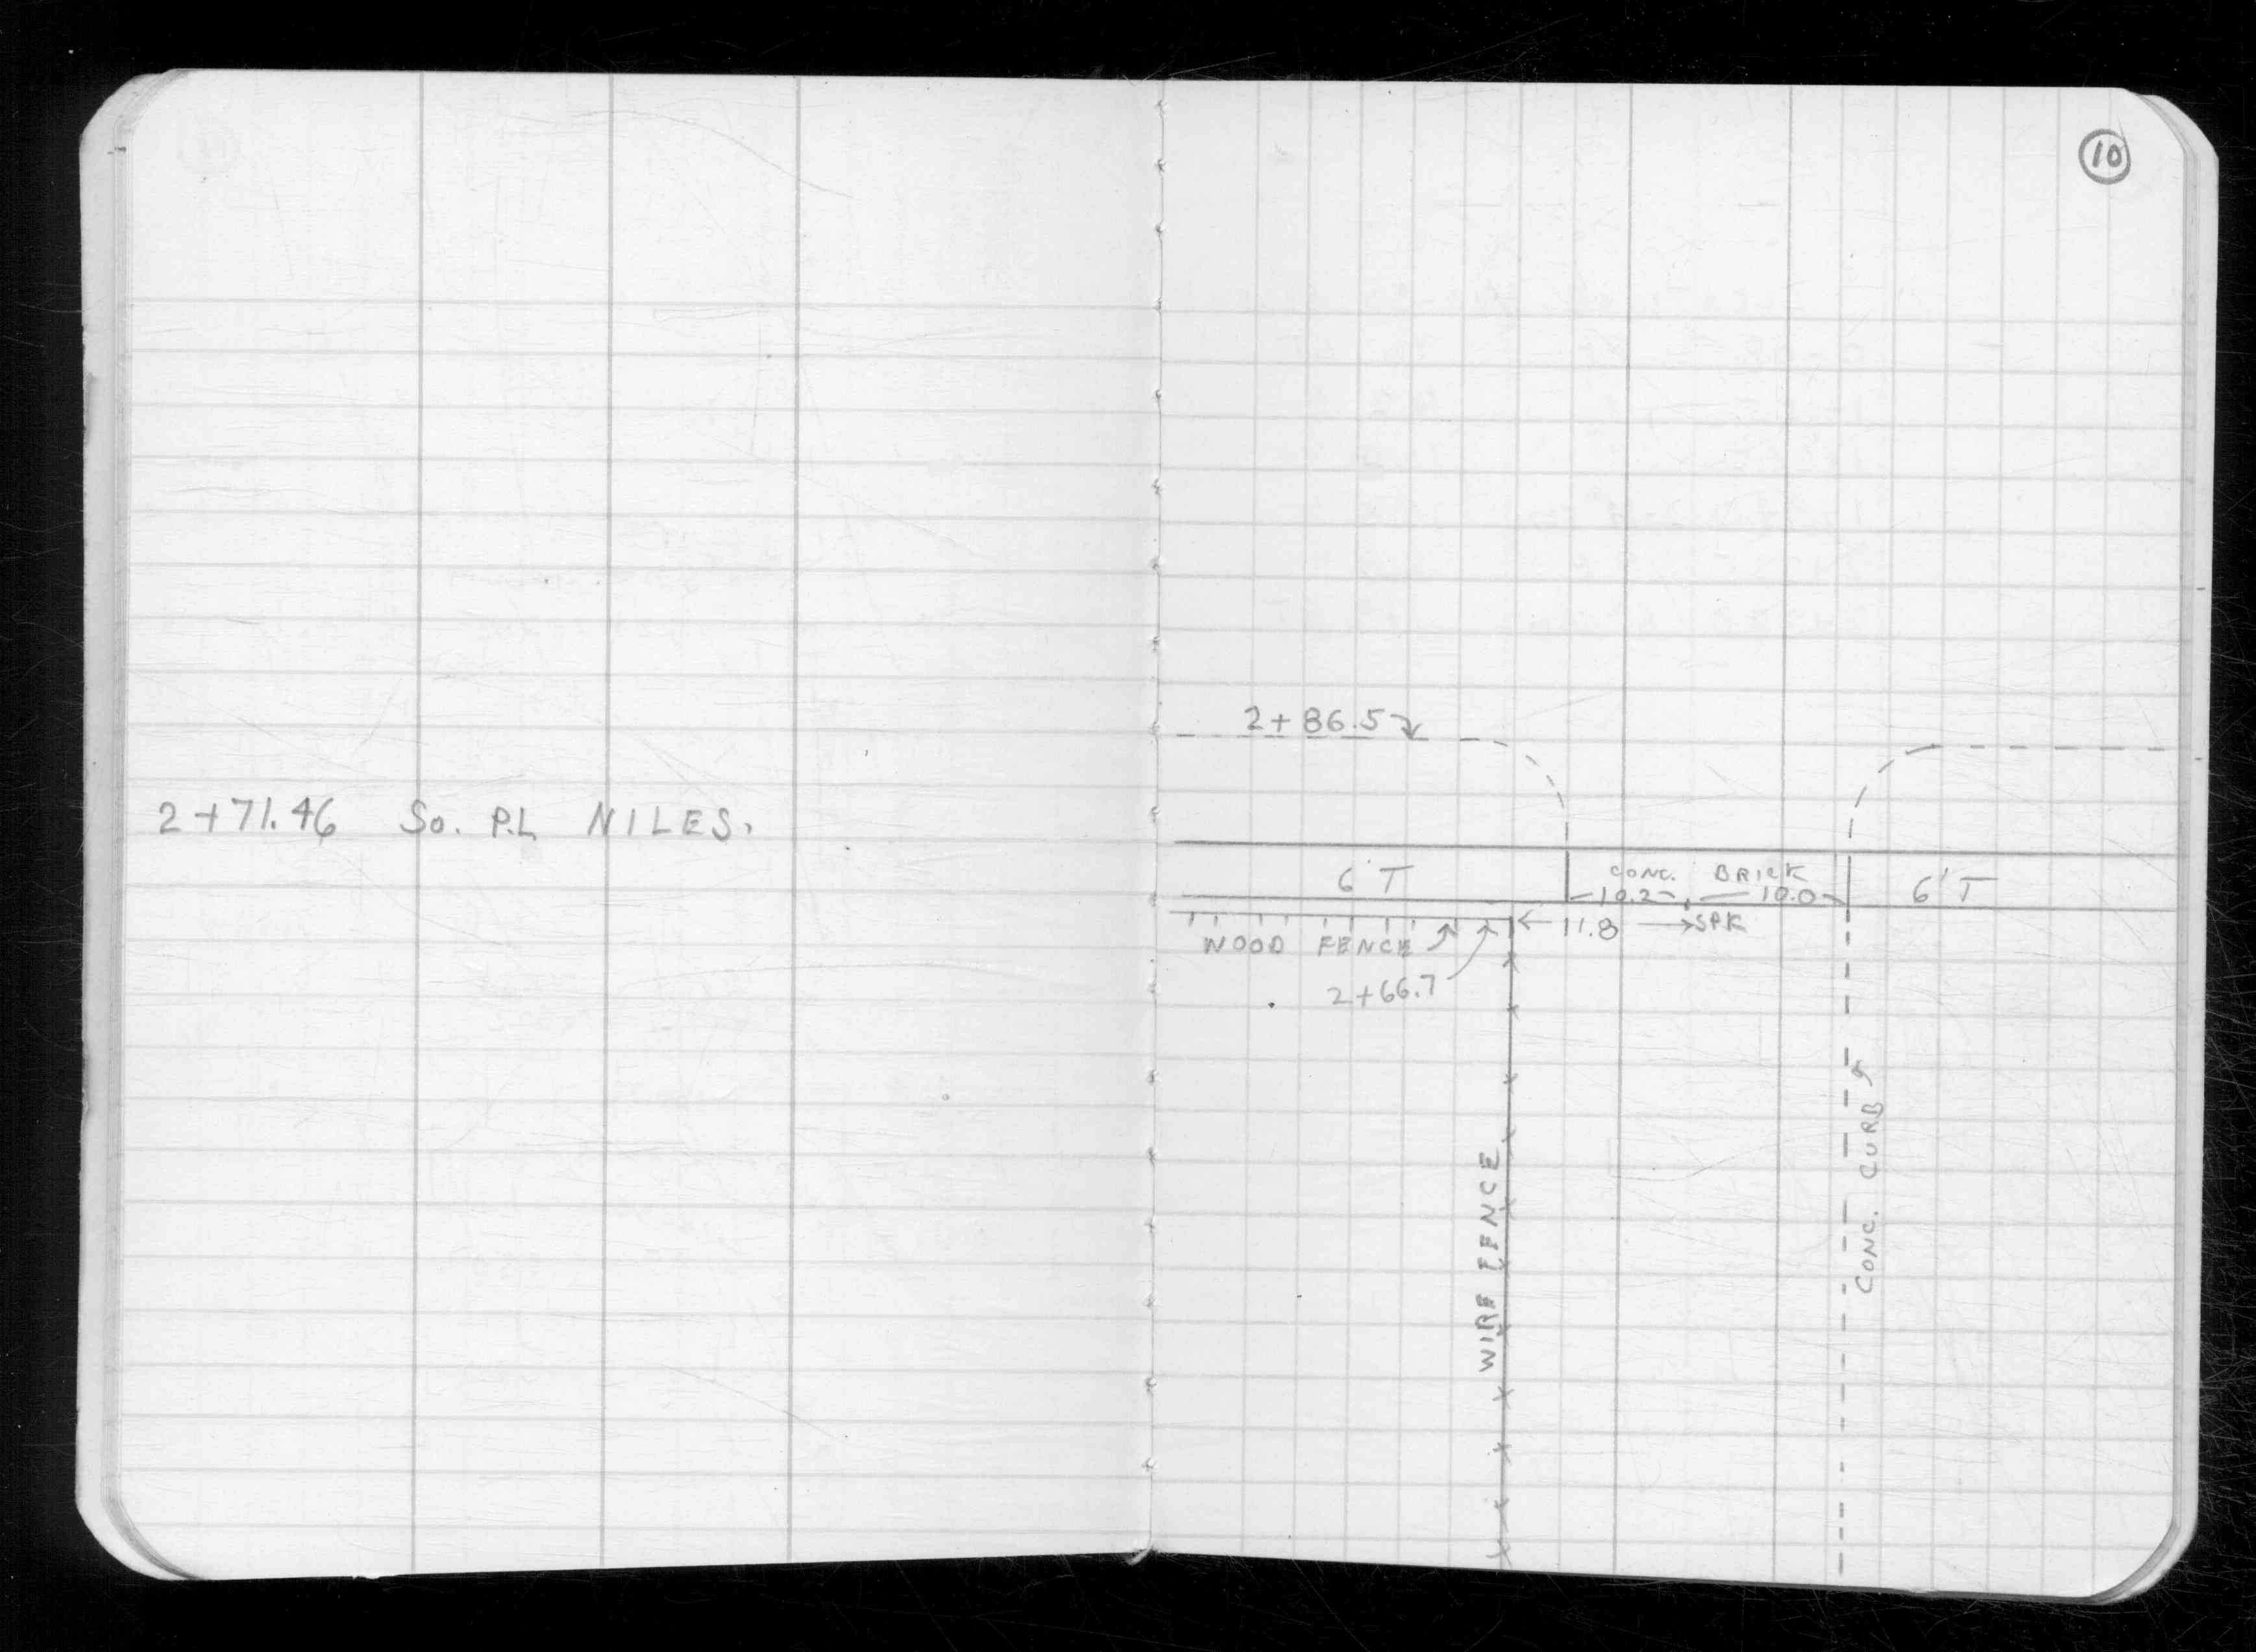 10
2+86.5
2+71.46 So. P.L NILES.
6'T
CONC. BRICK
10.2
10.0
6'T
11.8
SPK
WOOD FENCE
2+66.7
WIRE FENCE
CONC. CURB